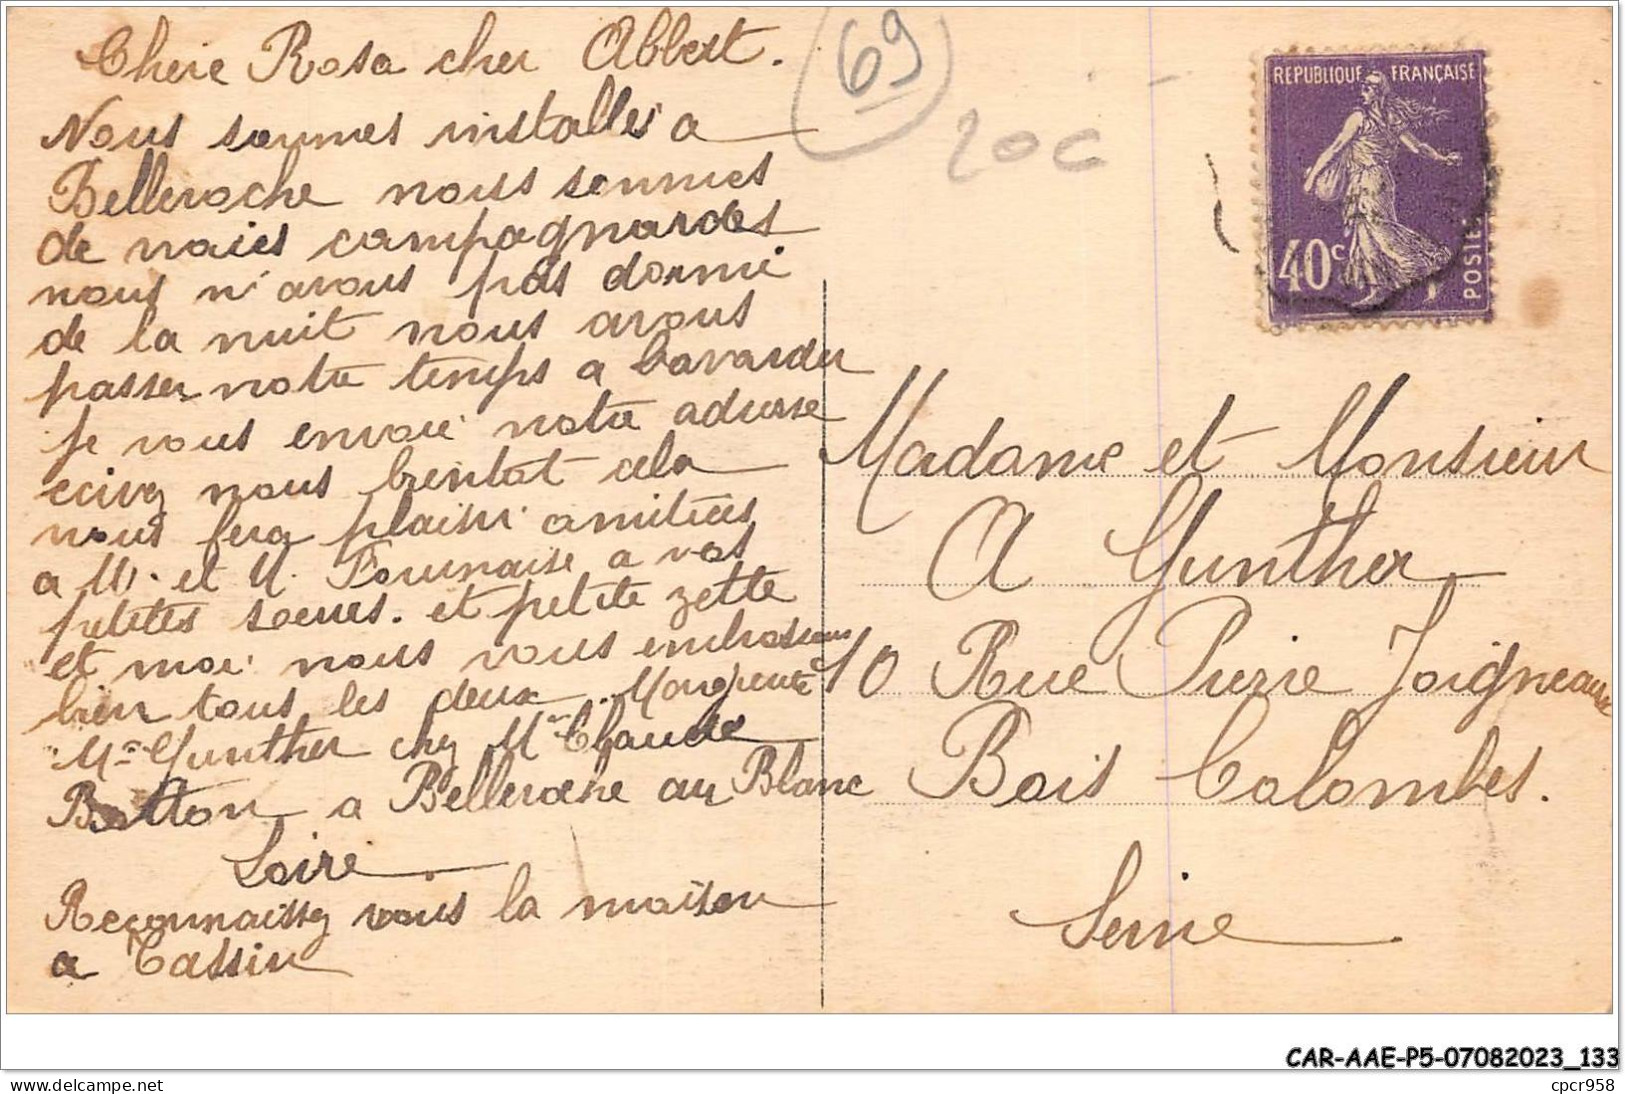 Chere Rosa cher Albert.
Nous sommes installés a
Belleroche nous sommes
de vraies campagnardes
nous n'avons pas dormi
de la nuit nous avons
passer notre temps a bavarder
je vous envoie notre adresse
ecivez nous bientot cela
nous fera plaisir amitiés
a M. et M. Fournaise a vos
petites soeurs. et petite zette
et moi nous vous embrassons
bien tous les deux. Marguerite
Me Gunther chez Mr Claude
a Belleroche au Blanc
Loire
Reconnaissez vous la maison
a Tassin
69
20c
REPUBLIQUE FRANÇAISE
40c
POSTES
Madame et Monsieur
A Gunther
10 Rue Pierre Joigneaux
Bois Colombes.
Seine
CAR-AAE-P5-07082023_133
www.delcampe.net
cpcr958